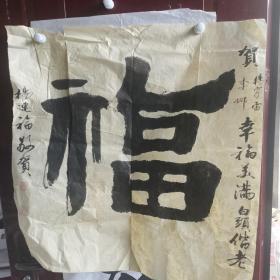 賀
幸福美滿白頭偕老
福
楊連福敬賀